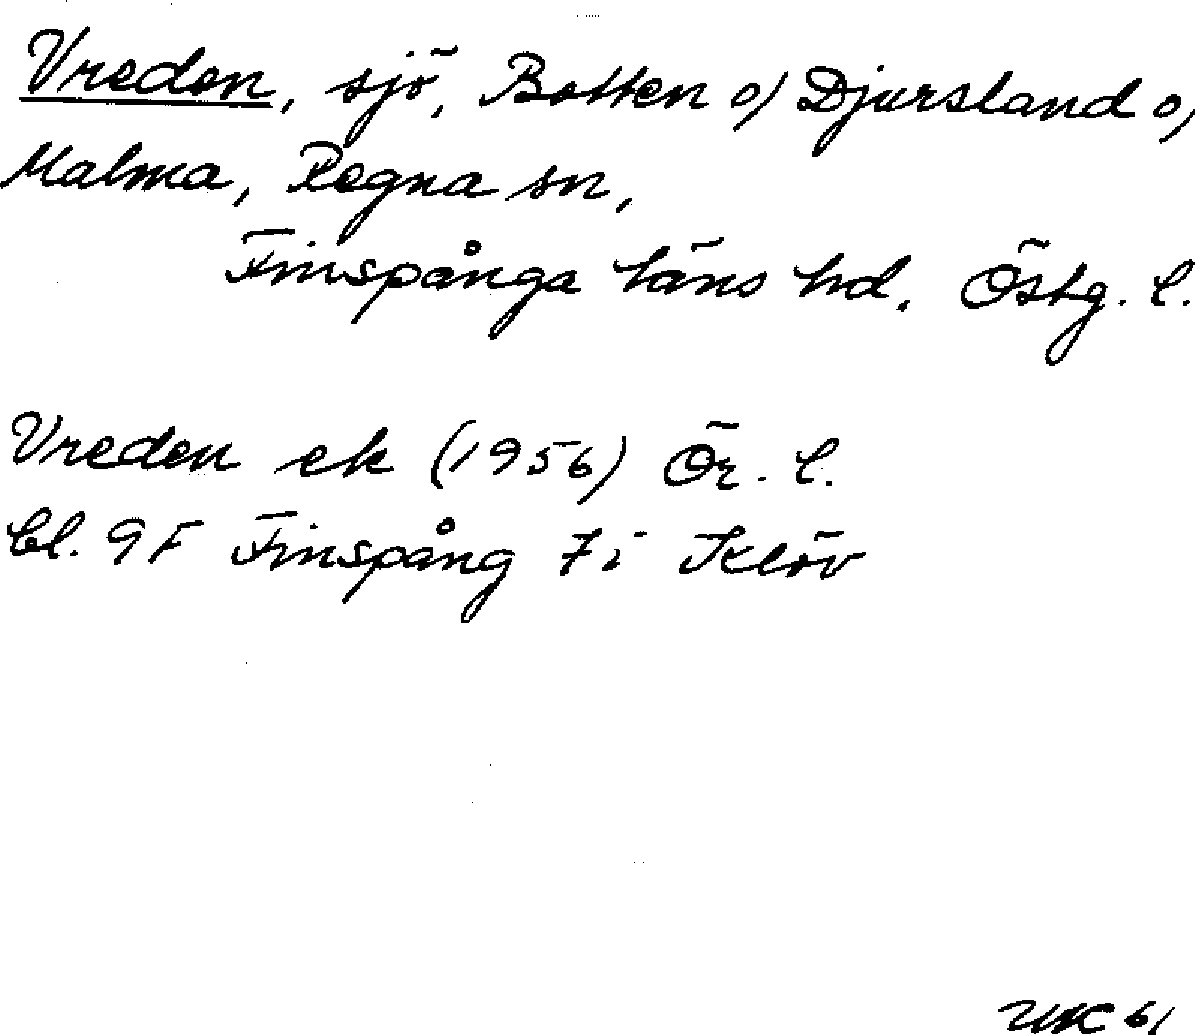 Vreden, sjö, Botten o/ Djursland o/
Malma, Regna sn,
Finspånga läns hd. Östg. l.
Vreden ek (1956) Ör. l.
bl. 9F Finspång 7i Klöv
61